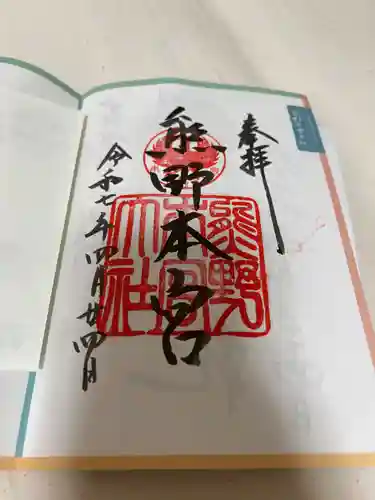 奉拝
熊野本宮
熊野本宮大社
令和七年四月廿四日